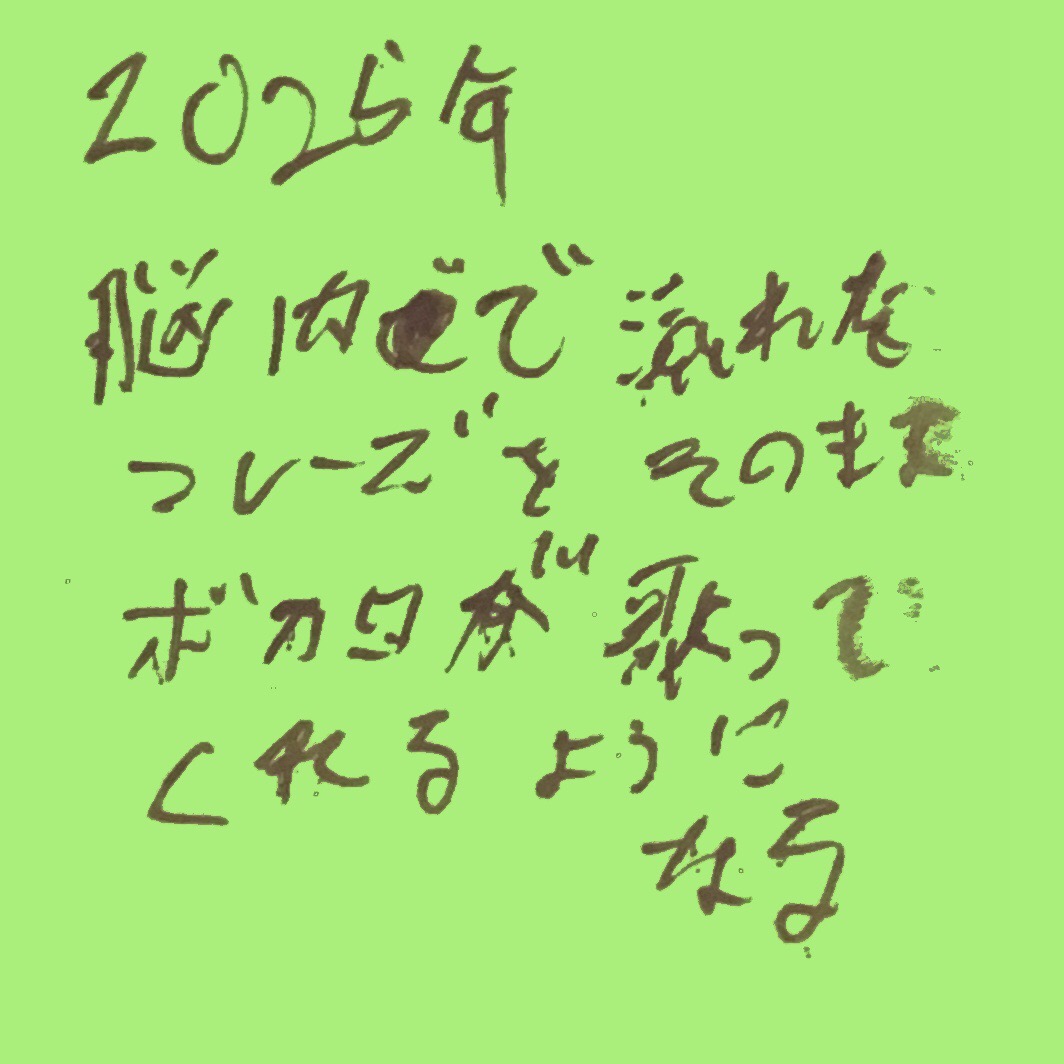 2025年
脳内で流れた
フレーズをそのまま
ボカロが歌って
くれるように
なる